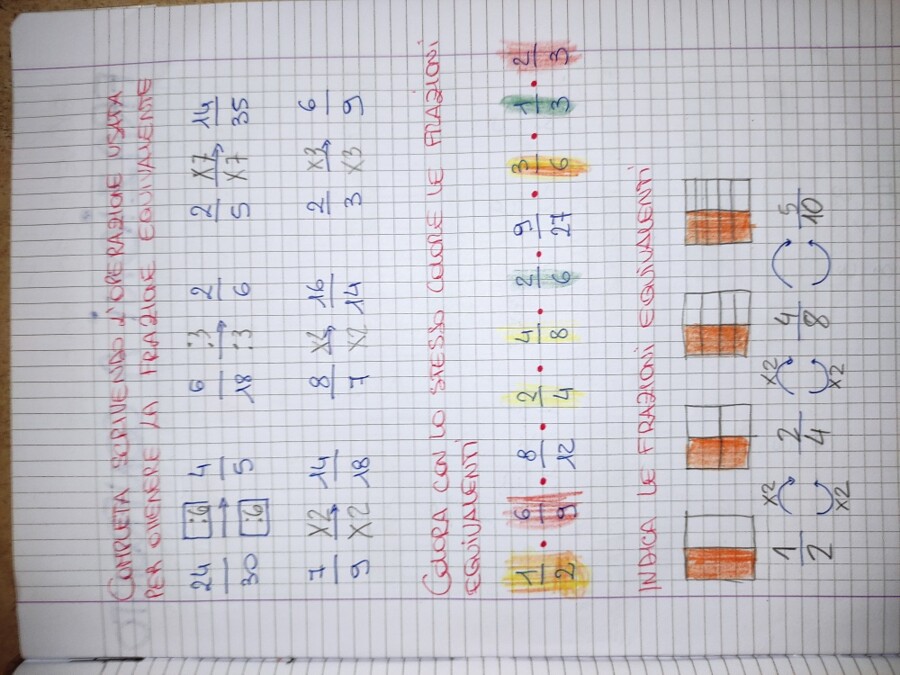 COMPLETA SCRIVENDO L'OPERAZIONE USATA
PER OTTENERE LA FRAZIONE EQUIVALENTE
24/30 :6/:6 → 4/5 6/18 :3/:3 → 2/6 2/5 x7/x7 → 14/35
7/9 x2/x2 → 14/18 8/7 x2/x2 → 16/14 2/3 x3/x3 → 6/9
COLORA CON LO STESSO COLORE LE FRAZIONI
EQUIVALENTI
1/2 • 6/9 • 8/12 • 2/4 • 4/8 • 2/6 • 9/27 • 3/6 • 1/3 • 2/3
INDICA LE FRAZIONI EQUIVALENTI
x2 x2
1/2 2/4 4/8 5/10
x2 x2